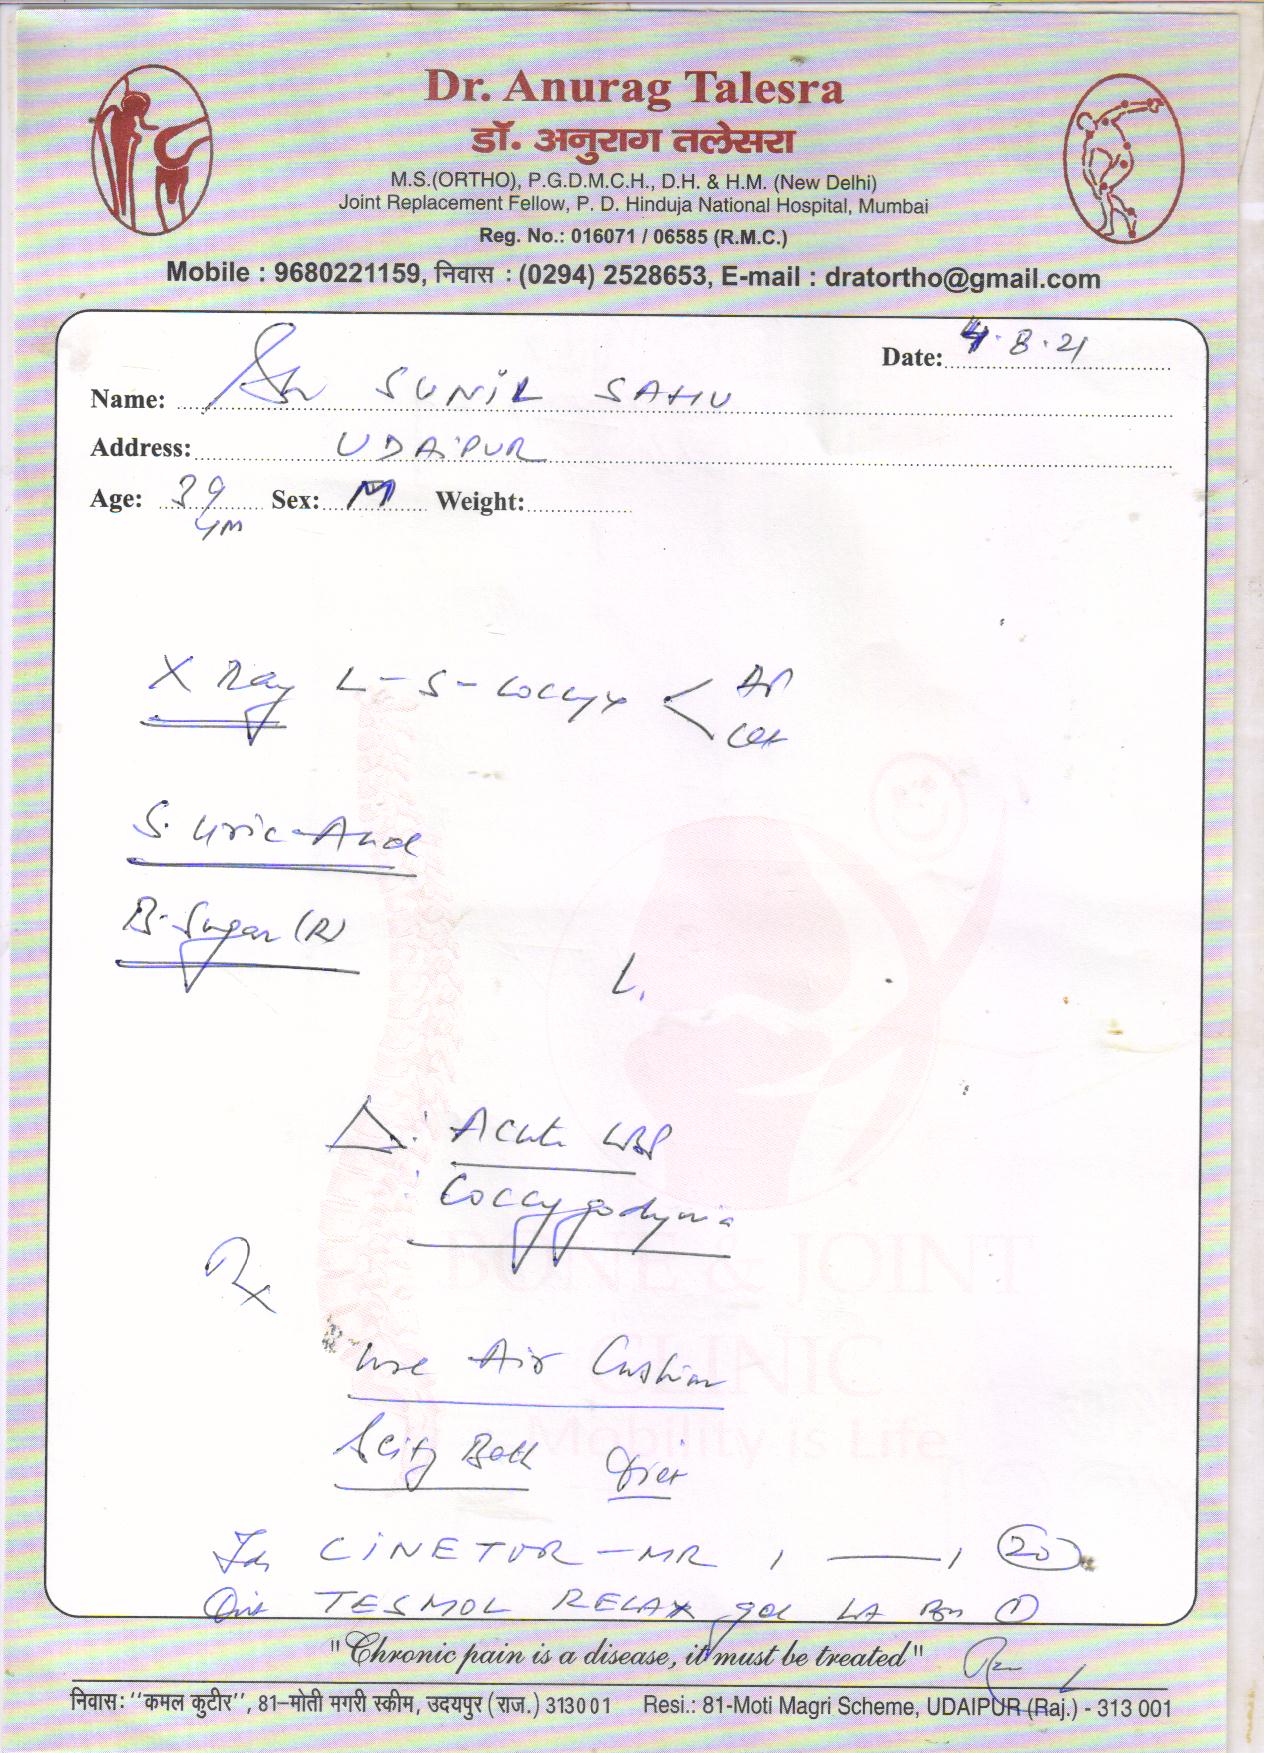 Dr. Anurag Talesra
डॉ. अनुराग तलेसरा
M.S.(ORTHO), P.G.D.M.C.H., D.H. & H.M. (New Delhi)
Joint Replacement Fellow, P. D. Hinduja National Hospital, Mumbai
Reg. No.: 016071 / 06585 (R.M.C.)
Mobile : 9680221159, निवास : (0294) 2528653, E-mail : dratortho@gmail.com
Date: 4.8.21
Name: SUNIL SAHU
Address: UDAIPUR
Age: 39 Sex: M Weight:
X Ray L-S-Coccyx < AP
S. Uric Acid
B. Sugar (R)
L.
Δ: Acute LBP
: Coccygodynia
Rx
BONE & JOINT
CLINIC
Use Air Cushion
Mobility is Life
Bath
CINETOR-MR 1 — 1 20
TESMOL RELAX gel LA 1
"Chronic pain is a disease, it must be treated"
निवास: "कमल कुटीर", 81-मोती मगरी स्कीम, उदयपुर (राज.) 313001 Resi.: 81-Moti Magri Scheme, UDAIPUR (Raj.) - 313 001